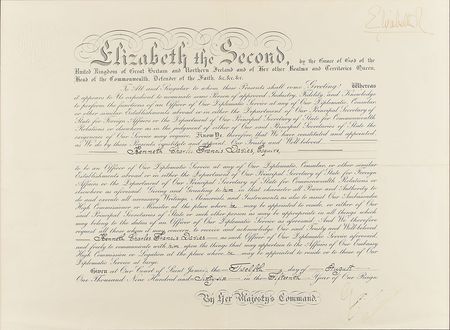 Elizabeth R
Elizabeth the Second, by the Grace of God of the
United Kingdom of Great Britain and Northern Ireland and of Her other Realms and Territories Queen,
Head of the Commonwealth, Defender of the Faith, &c.&c.&c.
To All and Singular to whom these Presents shall come Greeting! Whereas
it appears to Us expedient to nominate some Person of approved Industry, Fidelity and Knowledge
to perform the functions of an Officer of Our Diplomatic Service at any of Our Diplomatic, Consular
or other similar Establishments abroad or in either the Department of Our Principal Secretary of
State for Foreign Affairs or the Department of Our Principal Secretary of State for Commonwealth
Relations or elsewhere as in the judgment of either of Our said Principal Secretaries of State the
exigencies of Our Service may require. Know Ye therefore that We have constituted and appointed
as We do by these Presents constitute and appoint Our Trusty and Well-beloved
Kenneth Charles Francis Davies, Esquire
to be an Officer of Our Diplomatic Service at any of Our Diplomatic, Consular or other similar
Establishments abroad or in either the Department of Our Principal Secretary of State for Foreign
Affairs or the Department of Our Principal Secretary of State for Commonwealth Relations or
elsewhere as aforesaid Giving and Granting to him in that character all Power and Authority to
do and execute all necessary Writings, Memorials and Instruments as also to assist Our Ambassador
High Commissioner or Minister at the place where he may be appointed to reside or either of Our
said Principal Secretaries of State or such other person as may be appropriate in all things which
may belong to the duties of an Officer of Our Diplomatic Service as aforesaid : And We therefore
request all those whom it may concern to receive and acknowledge Our said Trusty and Well-beloved
Kenneth Charles Francis Davies as such Officer of Our Diplomatic Service aforesaid
and freely to communicate with him upon the things that may appertain to the Affairs of Our Embassy
High Commission or Legation at the place where he may be appointed to reside or to those of Our
Diplomatic Service at large.
Given at Our Court of Saint James's, the Twelfth day of August
One Thousand Nine Hundred and in the Fifteenth Year of Our Reign.
By Her Majesty's Command.